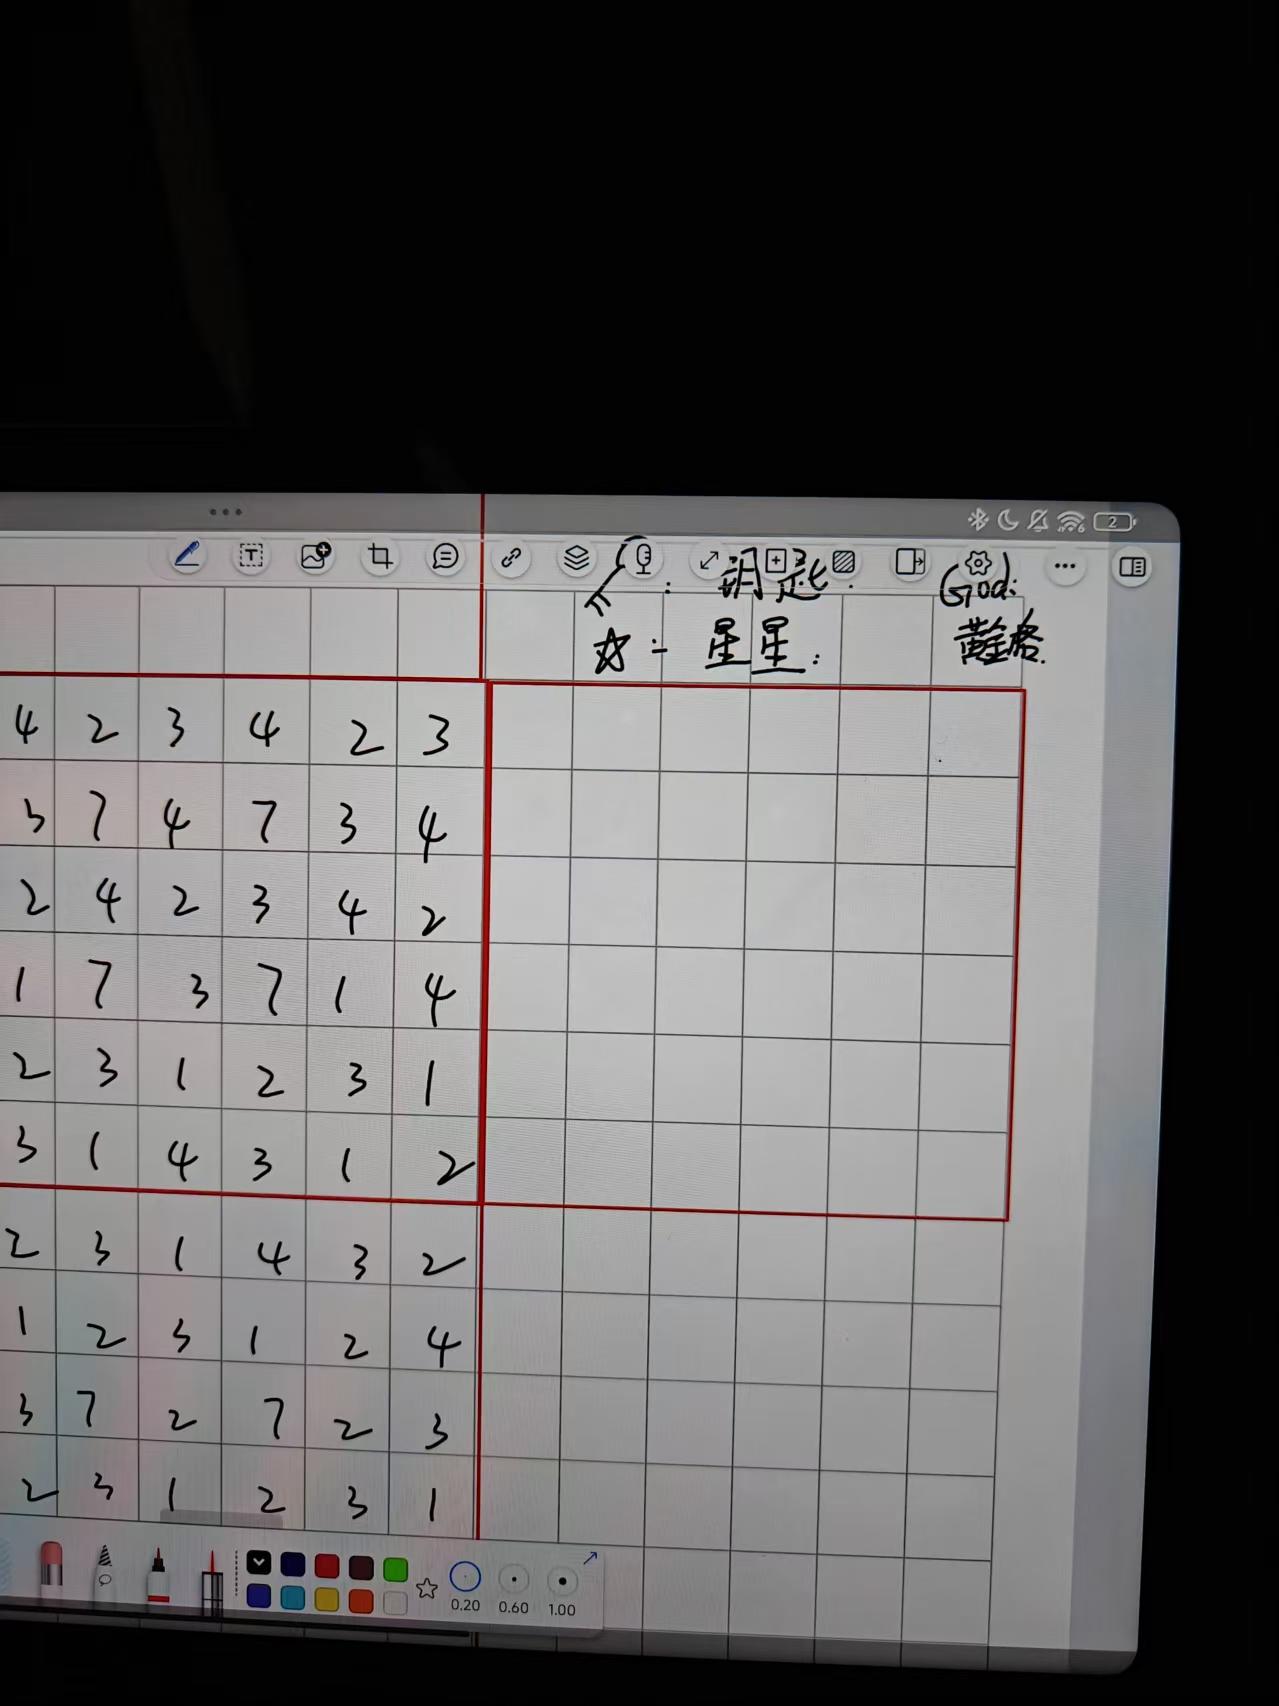 2
: 钥匙: God:
☆: 星星: 黄金格.
4 2 3 4 2 3
3 7 4 7 3 4
2 4 2 3 4 2
1 7 3 7 1 4
2 3 1 2 3 1
3 1 4 3 1 2
2 3 1 4 3 2
1 2 3 1 2 4
3 7 2 7 2 3
2 3 1 2 3 1
0.20 0.60 1.00